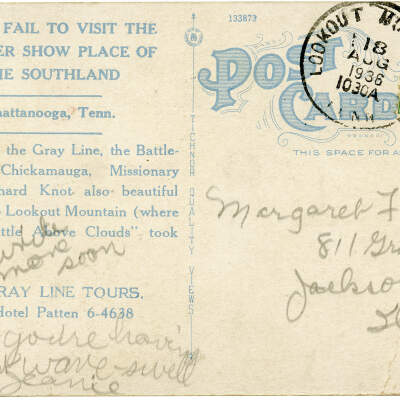 FAIL TO VISIT THE
ER SHOW PLACE OF
HE SOUTHLAND
hattanooga, Tenn.
the Gray Line, the Battle-
Chickamauga, Missionary
hard Knot also beautiful
Lookout Mountain (where
ttle Above Clouds" took
write
more soon
RAY LINE TOURS,
Hotel Patten 6-4638
you're havin
wave swell
Jeanie
133873
TICHNOR QUALITY VIEWS
POST
CARD
THIS SPACE FOR A
LOOKOUT MO
18
AUG
1936
1030A
Margaret F
811 Gr
Jackso